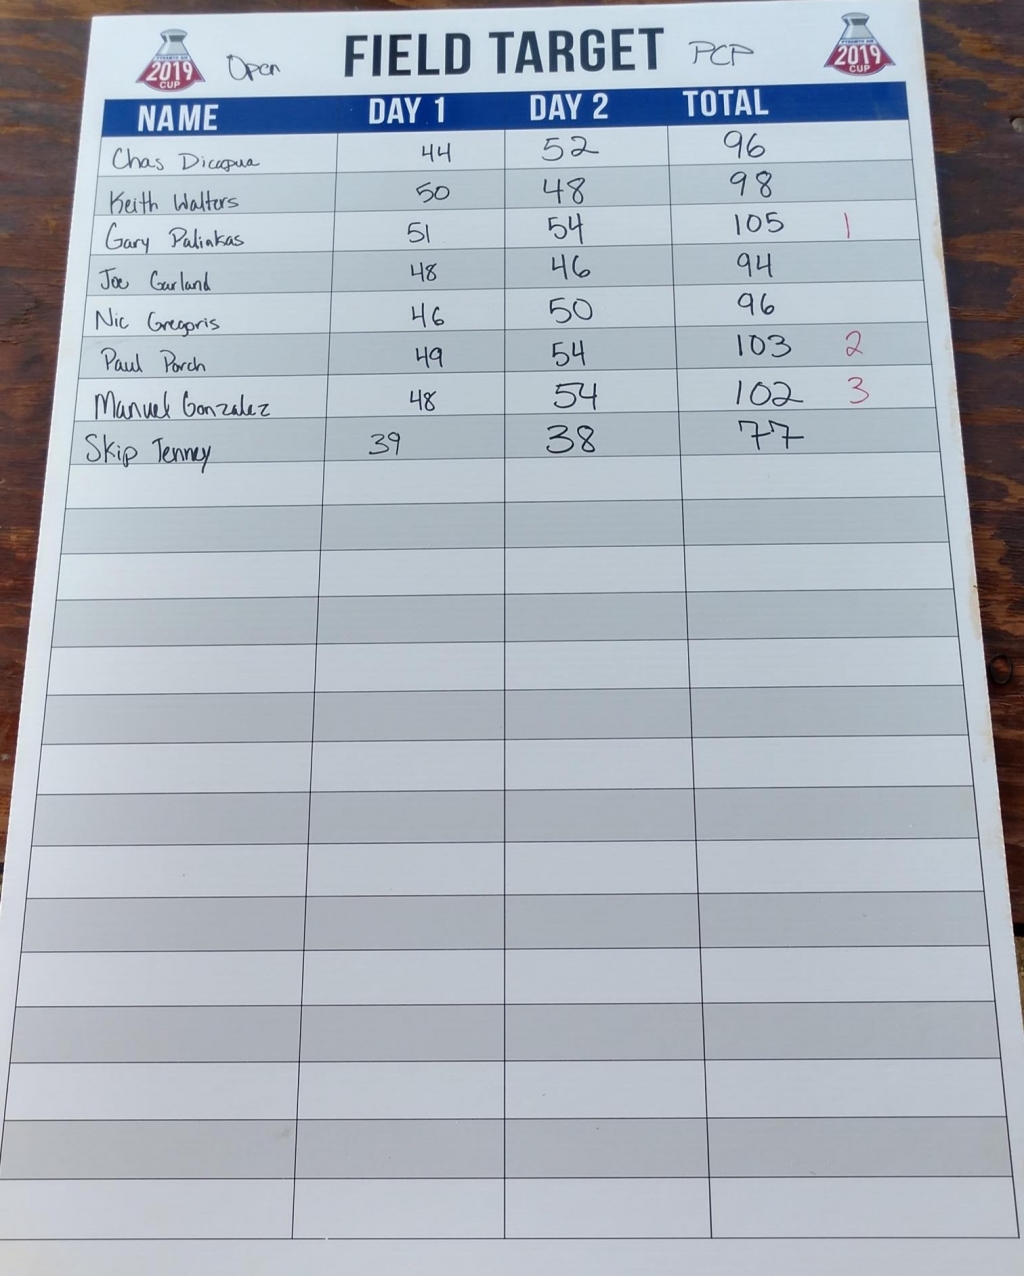 2019
CUP
Open
FIELD TARGET
PCP
PYRAMYD AIR
2019
CUP
NAME DAY 1 DAY 2 TOTAL
Chas Dicapua 44 52 96
Keith Walters 50 48 98
Gary Paliakas 51 54 105 1
Joe Garland 48 46 94
Nic Gregoris 46 50 96
Paul Porch 49 54 103 2
Manuel Gonzalez 48 54 102 3
Skip Tenney 39 38 77